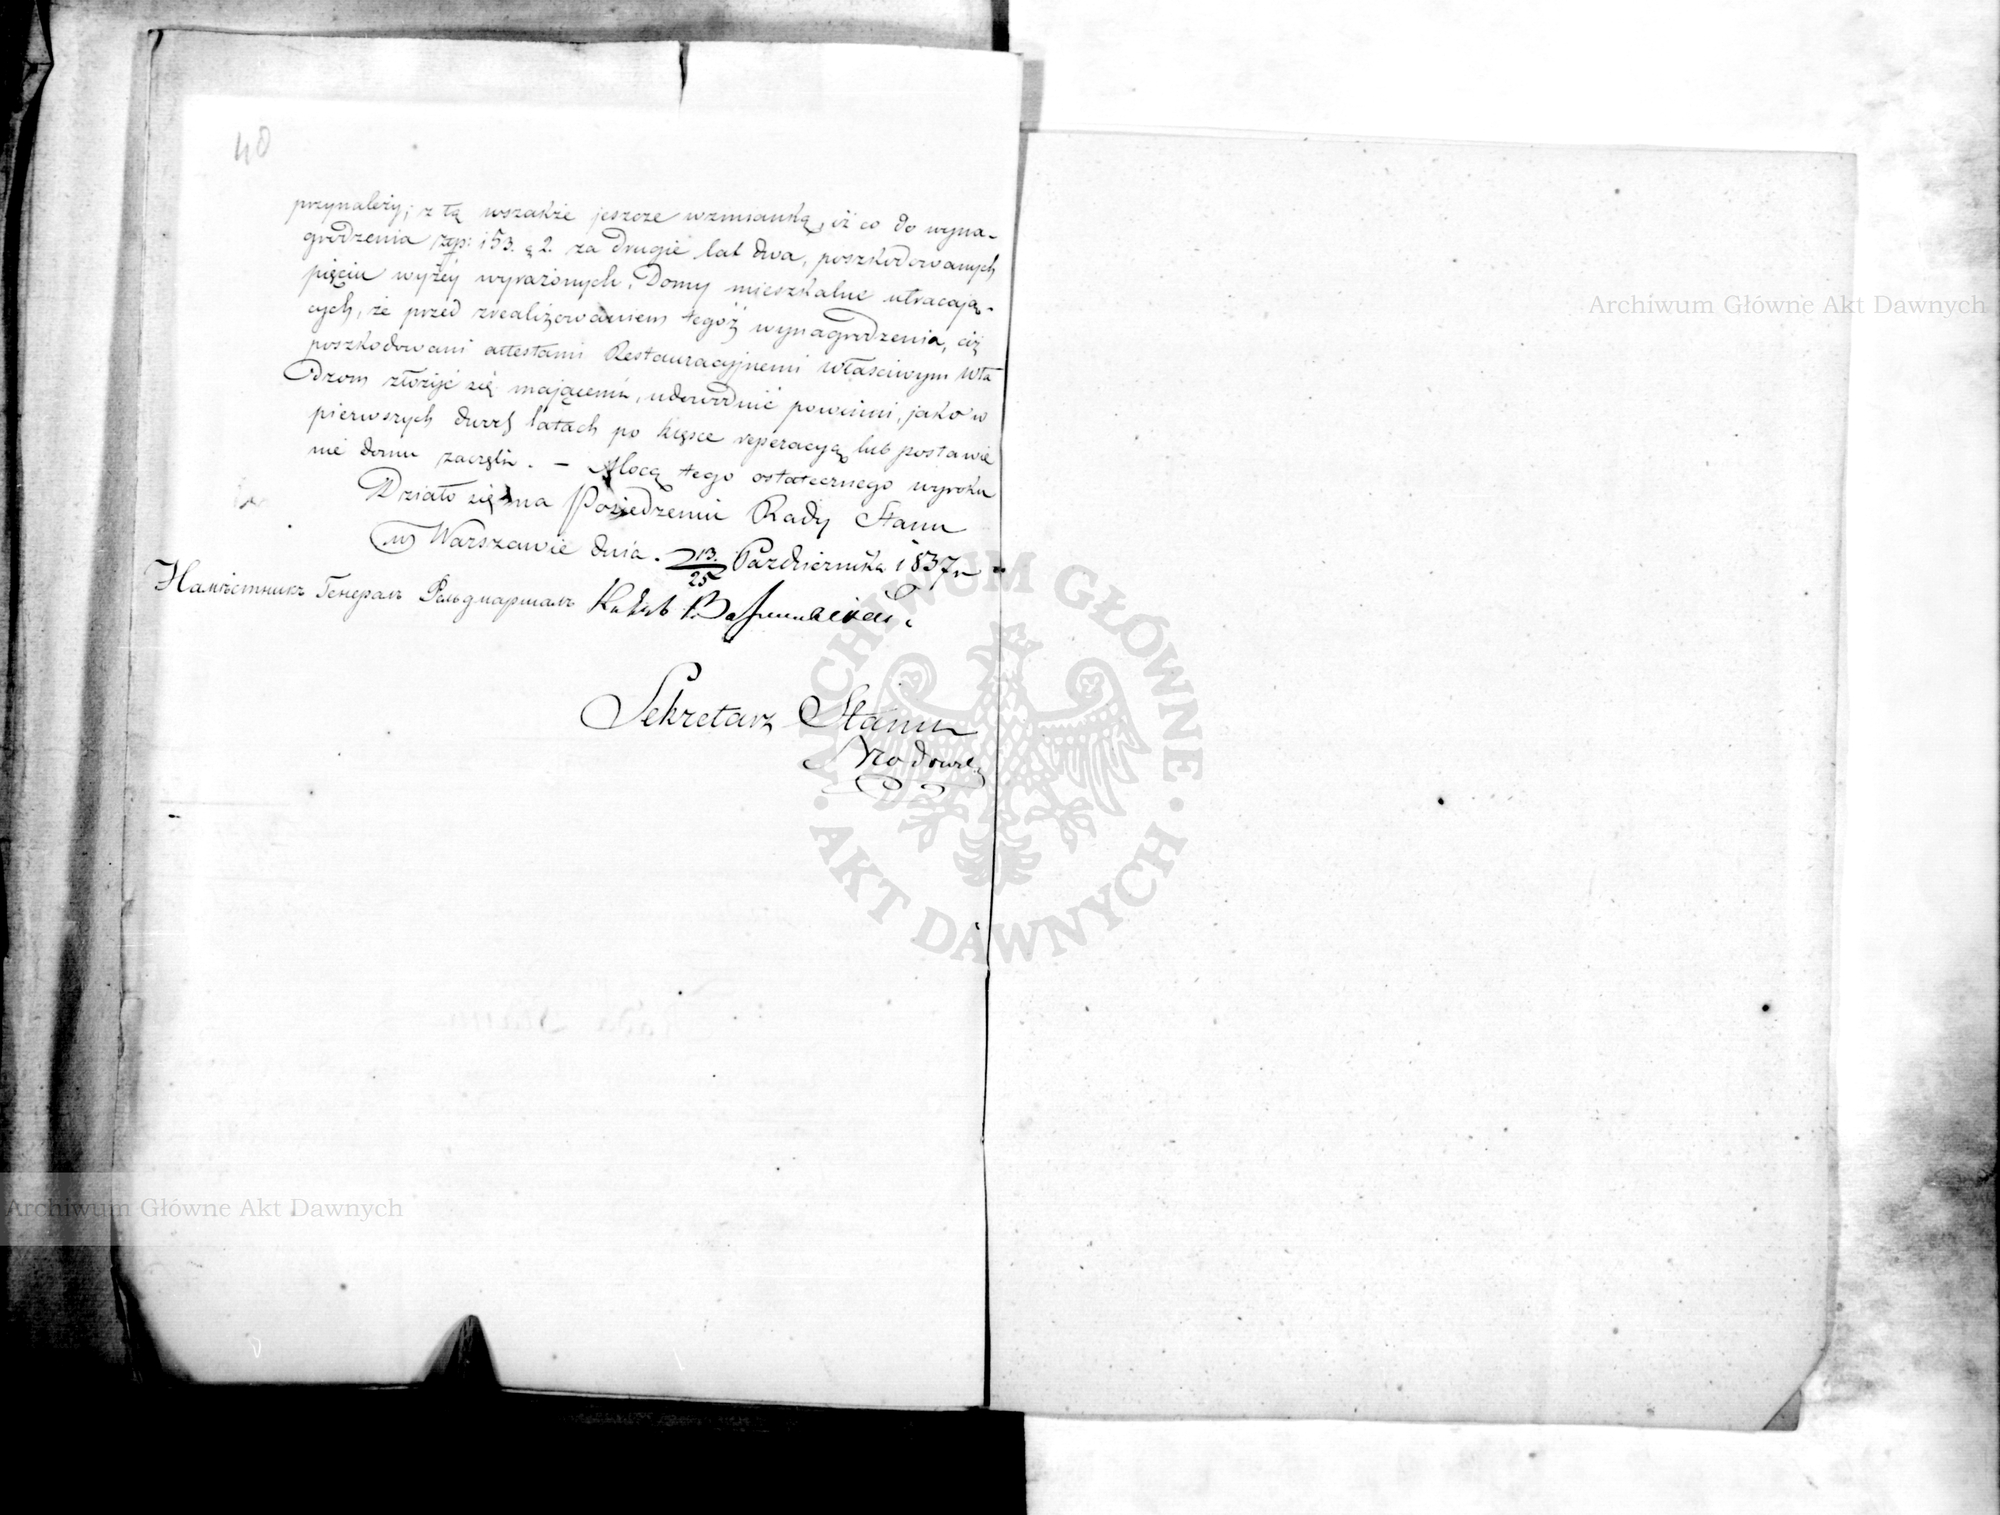 40
przynależy; z tą wszakże jeszcze wzmianką, iż co do wyna-
grodzenia złp: 153. g 2. za drugie lat dwa, poszkodowanych
pięciu wyżéy wyrażonych, Domy mieszkalne utracają-
cych, że przed zrealizowaniem tegoż wynagrodzenia, ciż
poszkodowani attestami Restauracyjnemi właściwym Wła
dzom złożyć się mającemi, udowodnić powinni, jako w
pierwszych dwóch latach po klęsce reperacyą lub postawie
nie domu zaczęli. – Mocą tego ostatecznego wyroku
Działo się na Posiedzeniu Rady Stanu
w Warszawie dnia 13/25 Października 1837 r
Намѣстникъ Генералъ Фельдмаршалъ
Sekretarz Stanu
Archiwum Główne Akt Dawnych
ARCHIWUM GŁÓWNE
AKT DAWNYCH
Archiwum Główne Akt Dawnych